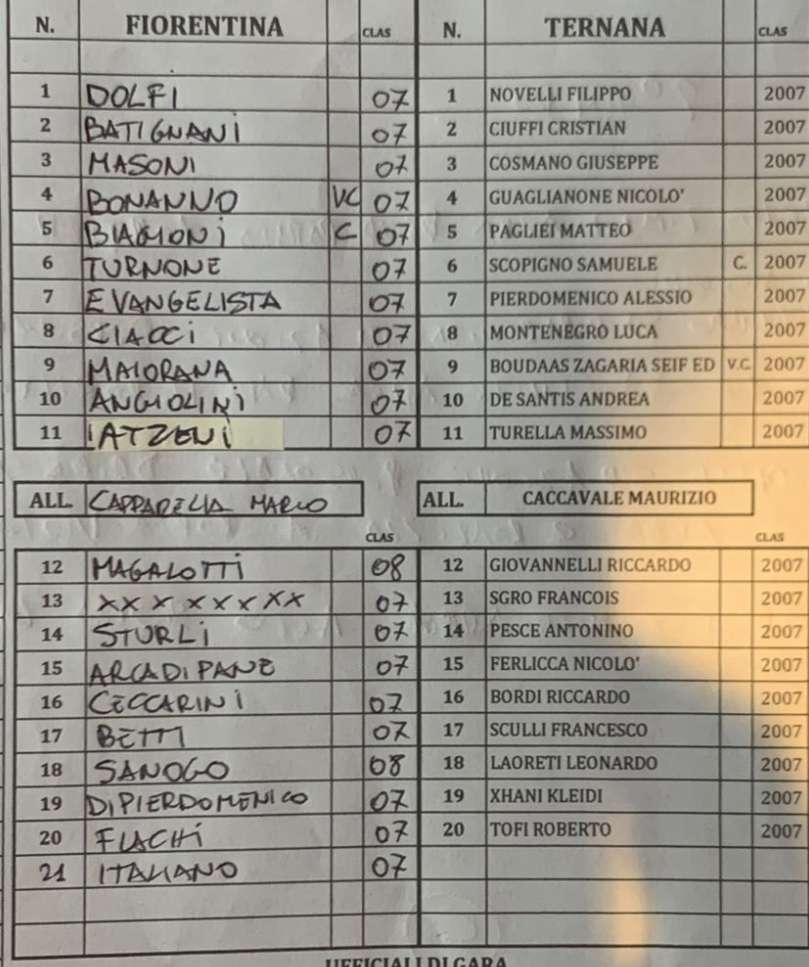 N. FIORENTINA CLAS N. TERNANA CLAS
1 DOLFI 07 1 NOVELLI FILIPPO 2007
2 BATIGNANI 07 2 CIUFFI CRISTIAN 2007
3 MASONI 07 3 COSMANO GIUSEPPE 2007
4 BONANNO VC 07 4 GUAGLIANONE NICOLO' 2007
5 BIAGIONI C 07 5 PAGLIEI MATTEO 2007
6 TURNONE 07 6 SCOPIGNO SAMUELE C. 2007
7 EVANGELISTA 07 7 PIERDOMENICO ALESSIO 2007
8 CIACCI 07 8 MONTENEGRO LUCA 2007
9 MAIORANA 07 9 BOUDAAS ZAGARIA SEIF ED V.C. 2007
10 ANGIOLINI 07 10 DE SANTIS ANDREA 2007
11 IATZENI 07 11 TURELLA MASSIMO 2007
ALL. CAPPARELLA MARCO ALL. CACCAVALE MAURIZIO
CLAS CLAS
12 MAGALOTTI 08 12 GIOVANNELLI RICCARDO 2007
13 XX X X X X XX 07 13 SGRO FRANCOIS 2007
14 STURLI 07 14 PESCE ANTONINO 2007
15 ARCADIPANE 07 15 FERLICCA NICOLO' 2007
16 CECCARINI 07 16 BORDI RICCARDO 2007
17 BETTI 07 17 SCULLI FRANCESCO 2007
18 SANOGO 08 18 LAORETI LEONARDO 2007
19 DIPIERDOMENICO 07 19 XHANI KLEIDI 2007
20 FLACHI 07 20 TOFI ROBERTO 2007
21 ITALIANO 07
UFFICIALI DI GARA